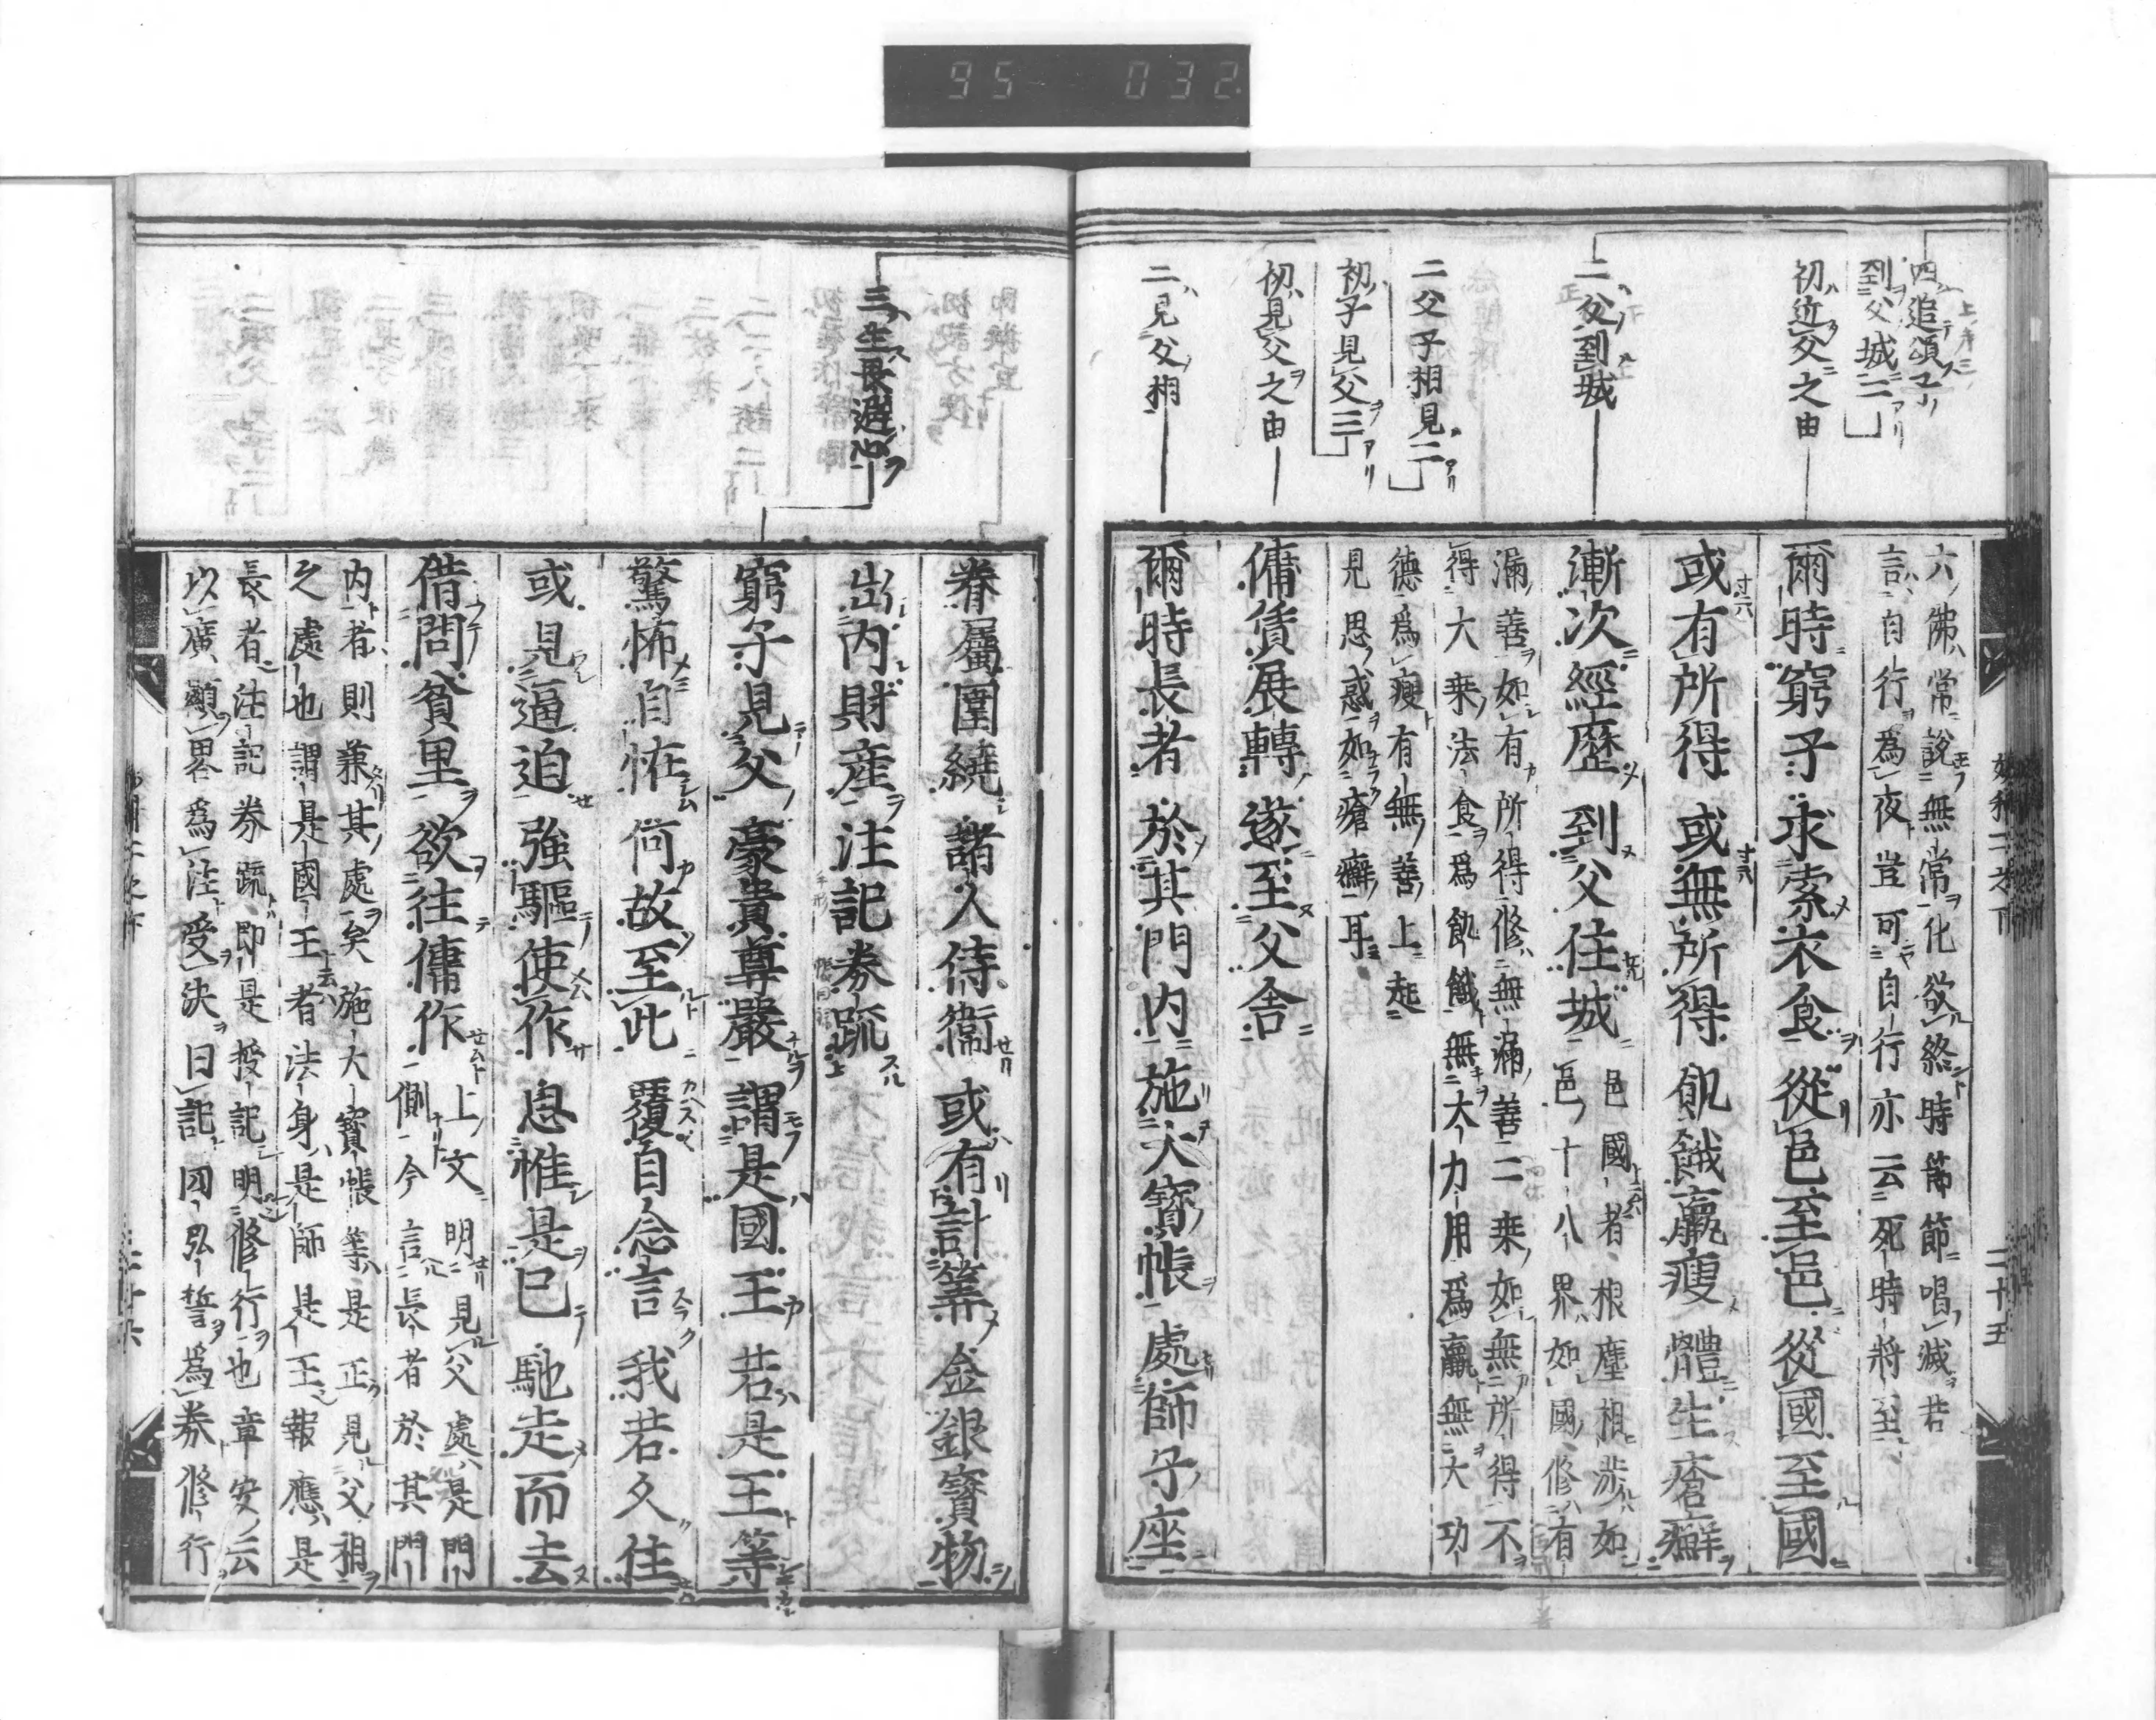 95 032
四追頌子
到父城二
初近父之由
二父到城
二父子相見二
初子見父三
初見父之由
二見父相
六佛常說無常化欲終時節節唱滅若
言自行爲夜豈可自行亦云死時將至
爾時窮子求索衣食從邑至邑從國至國
或有所得或無所得飢餓羸瘦體生瘡癬
漸次經歷到父住城
邑國者根塵相涉如
邑十八界如國修有
漏善如有所得修無漏善二乗如無所得不
得大乗法食爲飢餓無大力用爲羸無大功
德爲瘦有無善上起
見思惑如瘡癬耳
傭賃展轉遂至父舍
爾時長者於其門内施大寳帳處師子座
二十五
三生畏避心
眷屬圍繞諸人侍衞或有計筭金銀寳物
出内財產注記券疏
窮子見父豪貴尊嚴謂是國王若是王等
驚怖自恠何故至此覆自念言我若久住
或見逼迫強驅使作思惟是已馳走而去
借問貧里欲往傭作
上文明見父處是門
側今言長者於其門
内者則兼其處矣施大寳帳等是正見父相
之處也謂是國王者法身是師是王報應是
長者注記券疏即是授記明修行也章安云
以廣顯畧爲注受決曰記因弘誓爲券修行